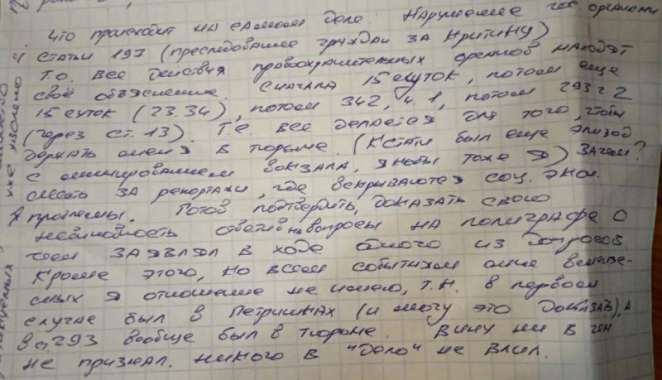 что происходит на самом деле. Нарушение гос. органами
статьи 197 (преследование граждан за критику)
Т.о. все действия правоохранительных органов находят
своё объяснение. Сначала 15 суток, потом еще
15 суток (23.34), потом 342, ч. 1, потом 293 ч 2
(через ст. 13). Те все делается для того, чтобы
держать меня в тюрьме. (Кстати был еще эпизод
с минированием вокзала, якобы тоже я) Зачем?
месть за репортажи, где вскрываются соц. экон.
проблемы. Готов подтвердить, доказать свою
невиновность ответив на вопросы на полиграфе о
чем заявлял в ходе одного из допросов
Кроме этого, ко всем событиям мне вменяе-
емых я отношение не имею, т.к. в первом
случае был в Петришках (и могу это доказать), а
в 293 вообще был в тюрьме. Вину ни в чем
не признал. Никого в "дело" не влил.